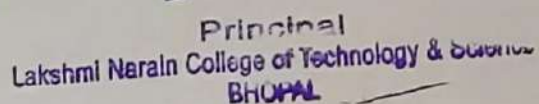 Principal
Lakshmi Narain College of Technology &
BHOPAL